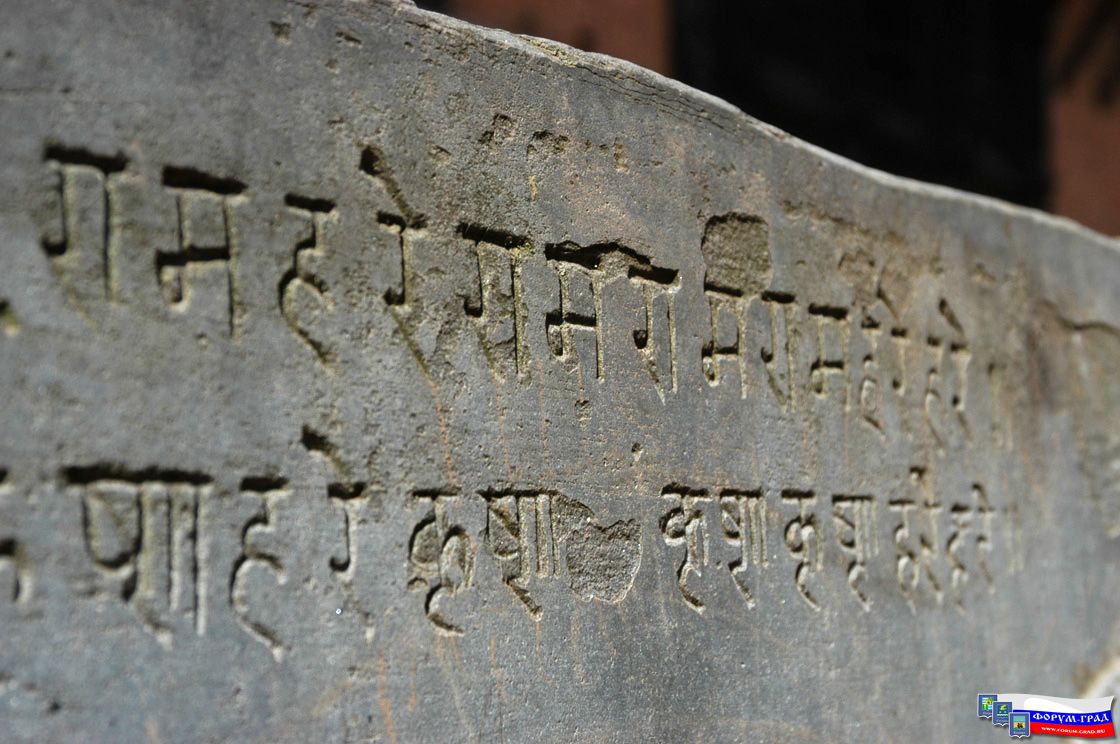 राम हरे राम राम राम हरे हरे
कृष्ण हरे कृष्ण कृष्ण कृष्ण हरे हरे
ФОРУМ-ГРАД
WWW.FORUM-GRAD.RU